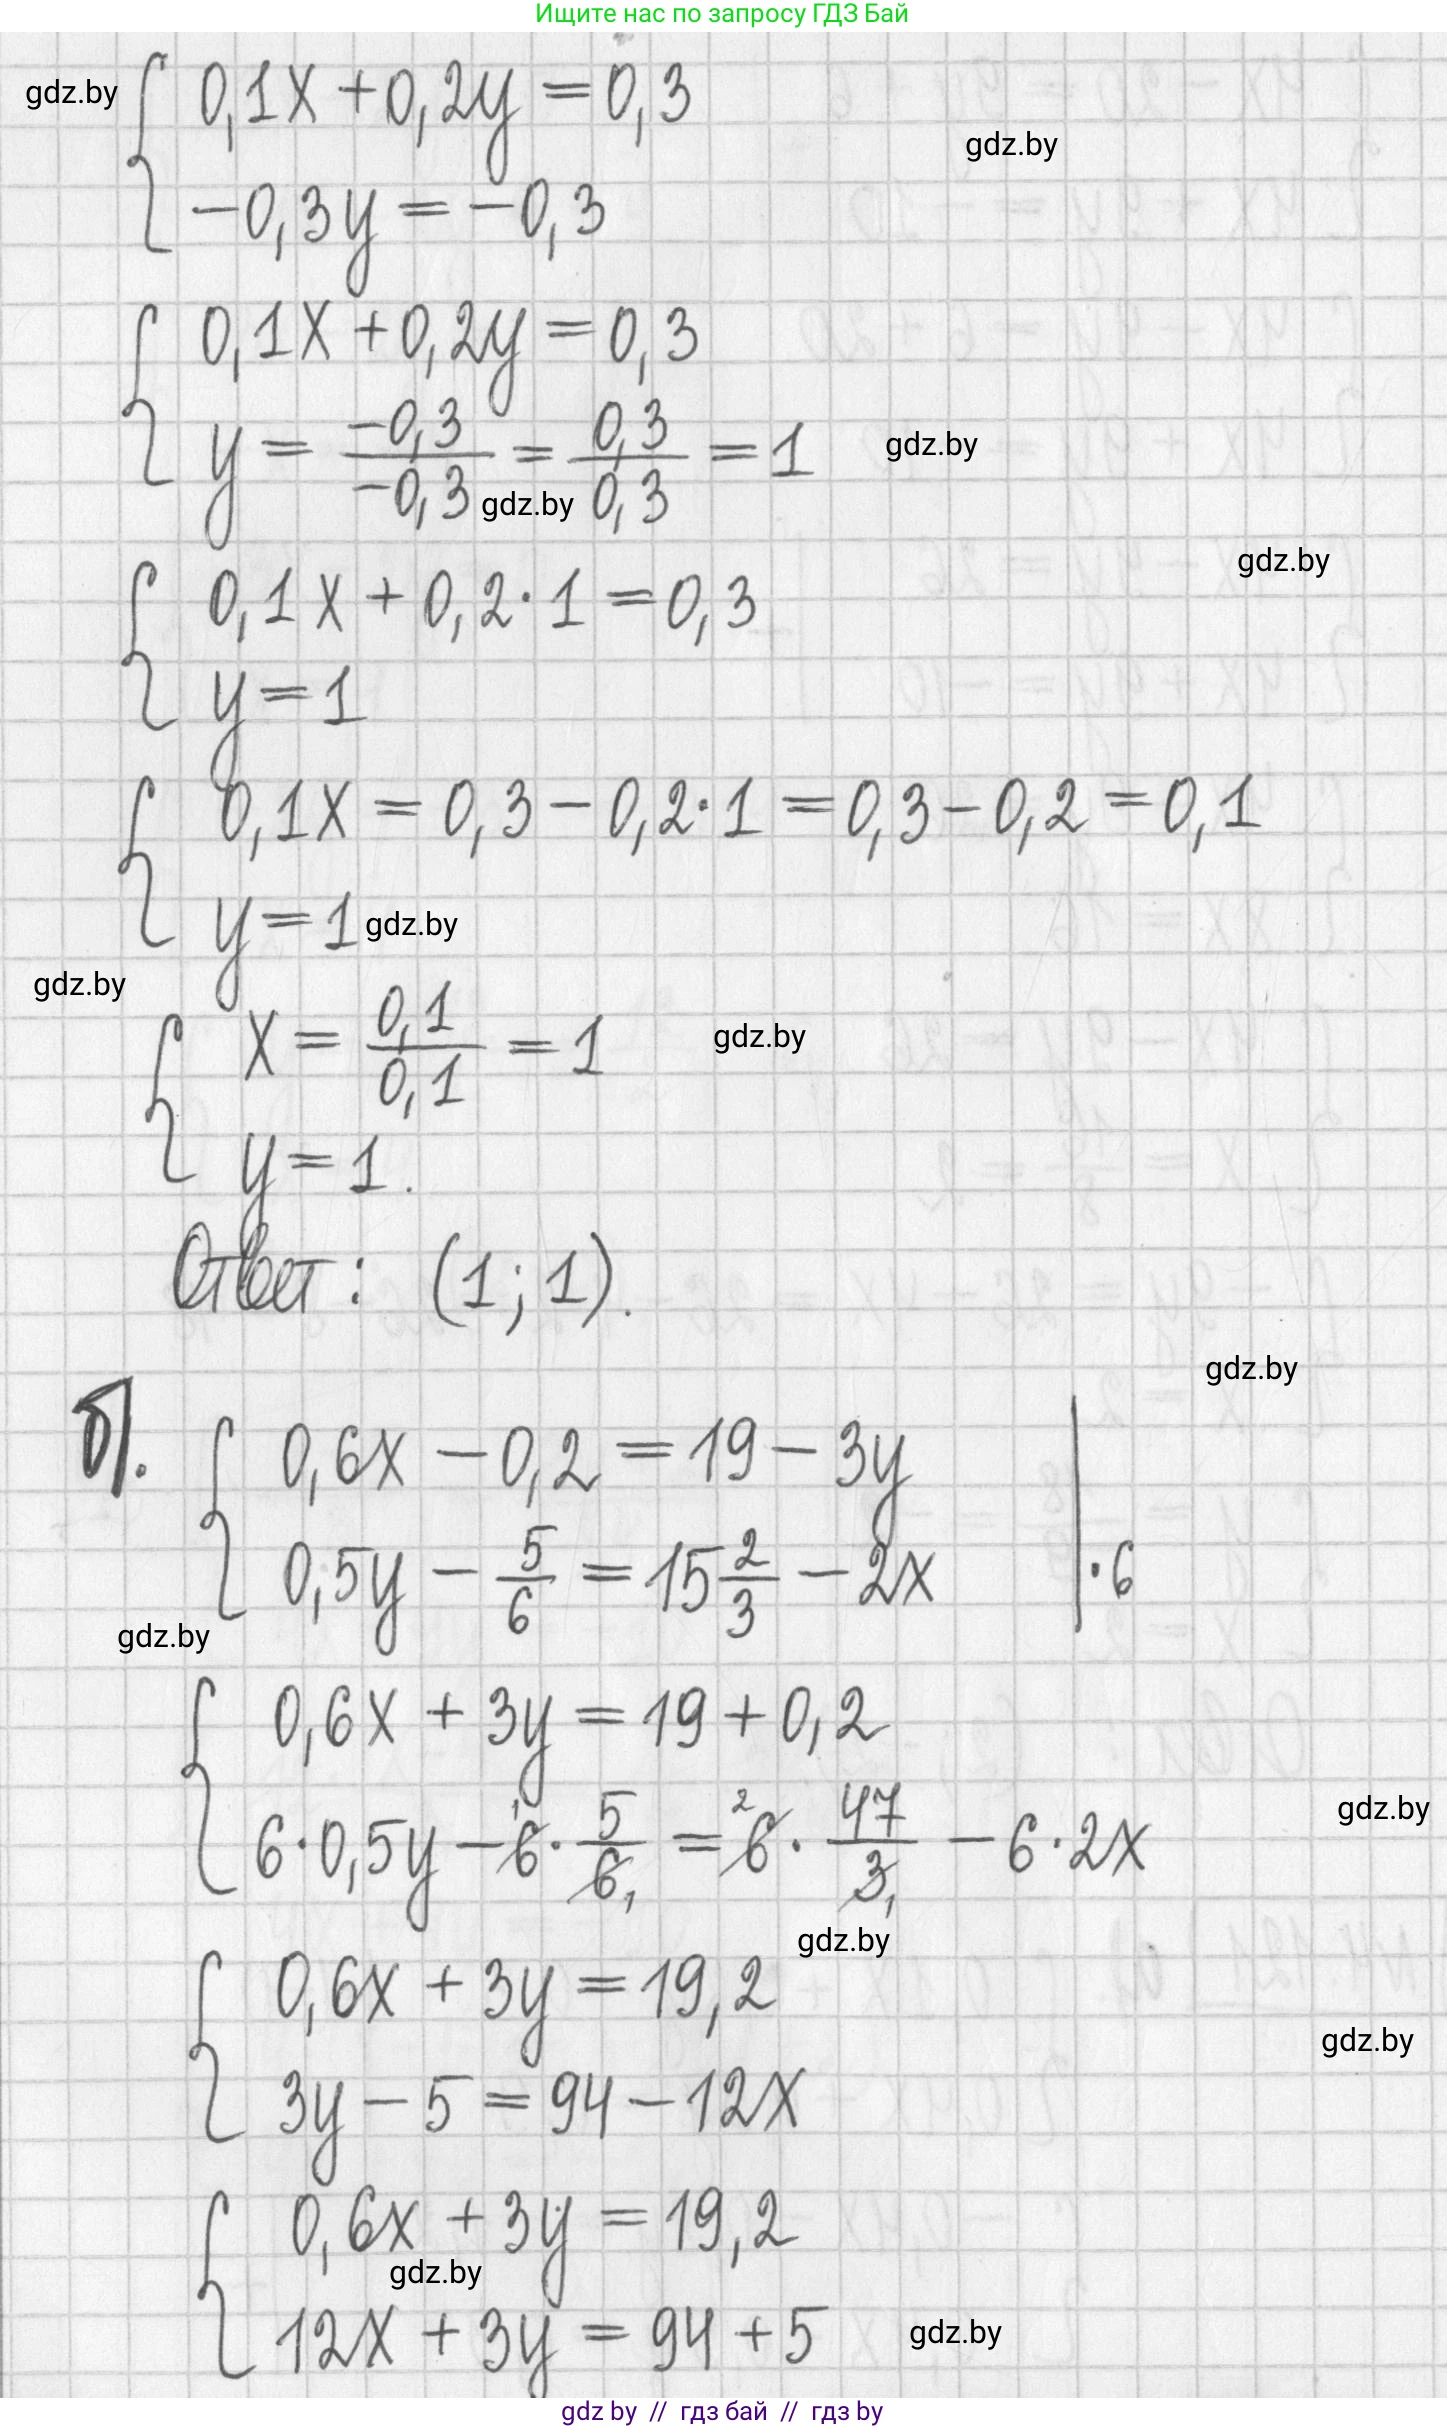 Ищите нас по запросу ГДЗ Бай
0,1x + 0,2y = 0,3
gdz.by
gdz.by
-0,3y = -0,3
0,1x + 0,2y = 0,3
y = -0,3/-0,3 = 0,3/0,3 = 1
gdz.by
gdz.by
gdz.by
0,1x + 0,2·1 = 0,3
y = 1
0,1x = 0,3 - 0,2·1 = 0,3 - 0,2 = 0,1
y = 1
gdz.by
gdz.by
x = 0,1/0,1 = 1
gdz.by
y = 1.
Ответ: (1; 1).
gdz.by
б). 0,6x - 0,2 = 19 - 3y
0,5y - 5/6 = 15 2/3 - 2x | ·6
gdz.by
0,6x + 3y = 19 + 0,2
gdz.by
6·0,5y - 6·5/6 = 6·47/3 - 6·2x
1 1 2 1
gdz.by
0,6x + 3y = 19,2
gdz.by
3y - 5 = 94 - 12x
0,6x + 3y = 19,2
gdz.by
12x + 3y = 94 + 5
gdz.by
gdz by // гдз бай // гдз by